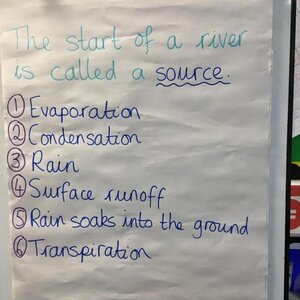 The start of a river
is called a source.
① Evaporation
② Condensation
③ Rain
④ Surface runoff
⑤ Rain soaks into the ground
⑥ Transpiration